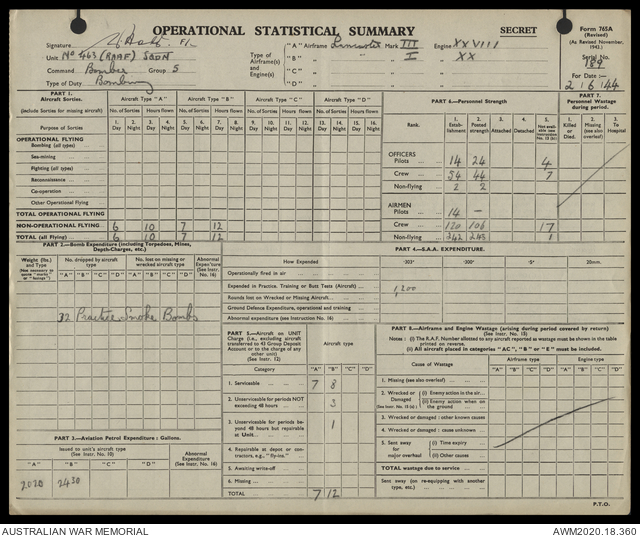 OPERATIONAL STATISTICAL SUMMARY
SECRET
Form 765A
(Revised)
(As Revised November, 1943.)
Serial No.
189
For Date :—
2 6 44
Signature F/-
Unit No 463 (RAAF) SQDN
Command Bomber Group 5
Type of Duty Bombing
Type of Airframe(s) and Engine(s)
"A" Airframe Lancaster Mark III Engine XXVIII
"B" " " I " XX
"C" " " "
"D" " " "
PART 1.
Aircraft Sorties.
(Include Sorties for missing aircraft)
Aircraft Type "A" Aircraft Type "B" Aircraft Type "C" Aircraft Type "D"
No. of Sorties Hours flown No. of Sorties Hours flown No. of Sorties Hours flown No. of Sorties Hours flown
Purpose of Sorties
1. Day 2. Night 3. Day 4. Night 5. Day 6. Night 7. Day 8. Night 9. Day 10. Night 11. Day 12. Night 13. Day 14. Night 15. Day 16. Night
OPERATIONAL FLYING
Bombing (all types)
Sea-mining
Fighting (all types)
Reconnaissance
Co-operation
Other Operational Flying
TOTAL OPERATIONAL FLYING
NON-OPERATIONAL FLYING 6 10 7 12
TOTAL (all Flying) 6 10 7 12
PART 6.—Personnel Strength
Rank.
1. Establishment 2. Posted strength 3. Attached 4. Detached 5. Not available (see instruction No. 13 (b))
OFFICERS
Pilots 14 24 4
Crew 54 44 7
Non-flying 2 2
AIRMEN
Pilots 14 —
Crew 120 106 17
Non-flying 242 245 1
PART 7.
Personnel Wastage during period.
1. Killed or Died. 2. Missing (see also overleaf) 3. To Hospital
PART 2.—Bomb Expenditure (including Torpedoes, Mines, Depth-Charges, etc.)
Weight (lbs.) and Type
(Not necessary to quote "marks" or "fusings")
No. dropped by aircraft type
"A" "B" "C" "D"
No. lost on missing or wrecked aircraft
"A" "B" "C" "D"
Abnormal Expen'ture (See Instr. No. 16)
32 Practice Smoke Bombs
PART 4.—S.A.A. EXPENDITURE.
How Expended ·303" ·300" ·5" 20mm.
Operationally fired in air
Expended in Practice, Training or Butt Tests (Aircraft) 1,200
Rounds lost on Wrecked or Missing Aircraft
Ground Defence Expenditure, operational and training
Abnormal expenditure (see Instruction No. 16)
PART 5.—Aircraft on UNIT Charge (i.e., excluding aircraft transferred to 43 Group Deposit Account or to the charge of any other unit) (See Instr. 12)
Aircraft type
Category "A" "B" "C" "D"
1. Serviceable 7 8
2. Unserviceable for periods NOT exceeding 48 hours 3
3. Unserviceable for periods beyond 48 hours but repairable at Unit 1
4. Repairable at depot or contractors, e.g., "fly-ins."
5. Awaiting write-off
6. Missing
TOTAL 7 12
PART 8.—Airframe and Engine Wastage (arising during period covered by return)
(See Instr. No. 15)
Notes : (i) The R.A.F. Number allotted to any aircraft reported as wastage must be shown in the table printed on reverse.
(ii) All aircraft placed in categories "AC", "B" or "E" must be included.
Cause of Wastage
Airframe type Engine type
"A" "B" "C" "D" "A" "B" "C" "D"
1. Missing (see also overleaf)
2. Wrecked or Damaged (i) Enemy action in the air
(See Instr. No. 15 (a)) (ii) Enemy action when on the ground
3. Wrecked or damaged : other known causes
4. Wrecked or damaged : cause unknown
5. Sent away for major overhaul (i) Time expiry
(ii) Other causes
TOTAL wastage due to service
Sent away (on re-equipping with another type, etc.)
PART 3.—Aviation Petrol Expenditure : Gallons.
Issued to unit's aircraft type (See Instr. No. 10)
"A" "B" "C" "D"
Abnormal Expenditure (See Instr. No. 16)
2020 2430
P.T.O.
AUSTRALIAN WAR MEMORIAL
AWM2020.18.360